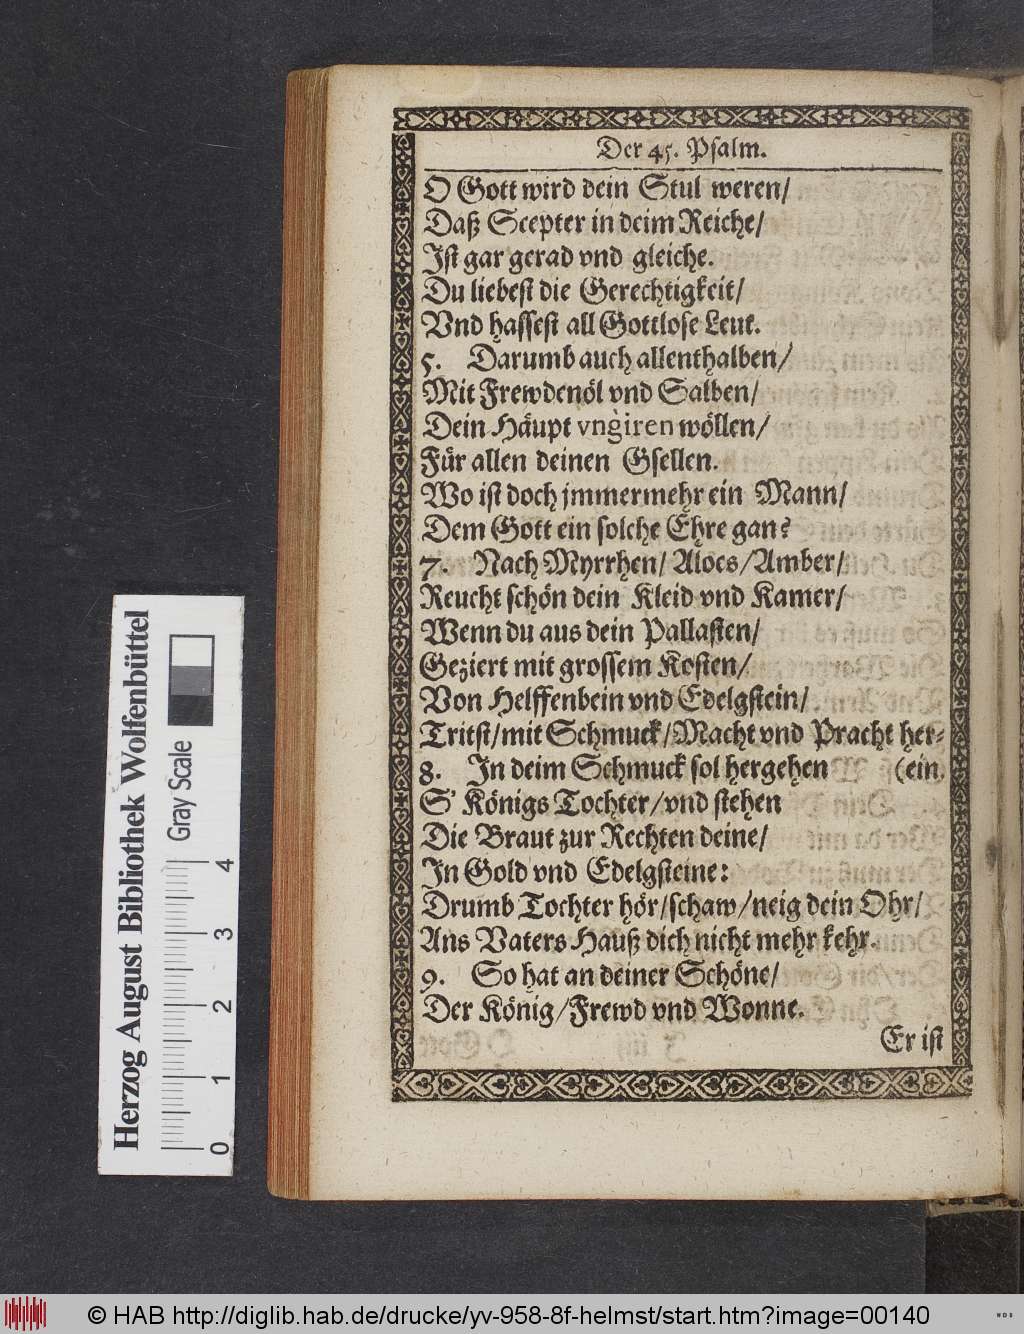 Der 45. Psalm.
O Gott wird dein Stul weren/
Daß Scepter in deim Reiche/
Ist gar gerad vnd gleiche.
Du liebest die Gerechtigkeit/
Vnd hassest all Gottlose Leut.
5. Darumb auch allenthalben/
Mit Frewdenöl vnd Salben/
Dein Häupt vngiren wöllen/
Für allen deinen Gsellen.
Wo ist doch jmmermehr ein Mann/
Dem Gott ein solche Ehre gan?
7. Nach Myrrhen/ Aloes/Amber/
Reucht schön dein Kleid vnd Kamer/
Wenn du aus dein Pallasten/
Geziert mit grossem Kosten/
Von Helffenbein vnd Edelgstein/
Tritst/mit Schmuck/Macht vnd Pracht her-
8. In deim Schmuck sol hergehen (ein.
S' Königs Tochter/vnd stehen
Die Braut zur Rechten deine/
In Gold vnd Edelgsteine:
Drumb Tochter hör/schaw/neig dein Ohr/
Ans Vaters Hauß dich nicht mehr kehr.
9. So hat an deiner Schöne/
Der König/Frewd vnd Wonne.
Er ist
Herzog August Bibliothek Wolfenbüttel
Gray Scale
0 1 2 3 4
© HAB http://diglib.hab.de/drucke/yv-958-8f-helmst/start.htm?image=00140